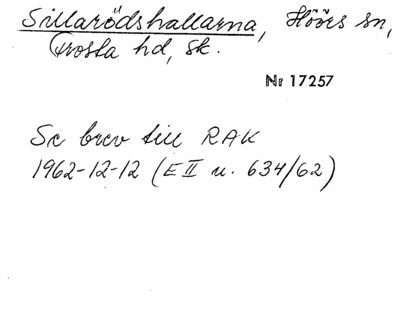 Sillarödshallarna, Höörs sn,
Frosta hd, Sk.
Nr 17257
Se brev till RAK
1962-12-12 (E II n. 634/62)